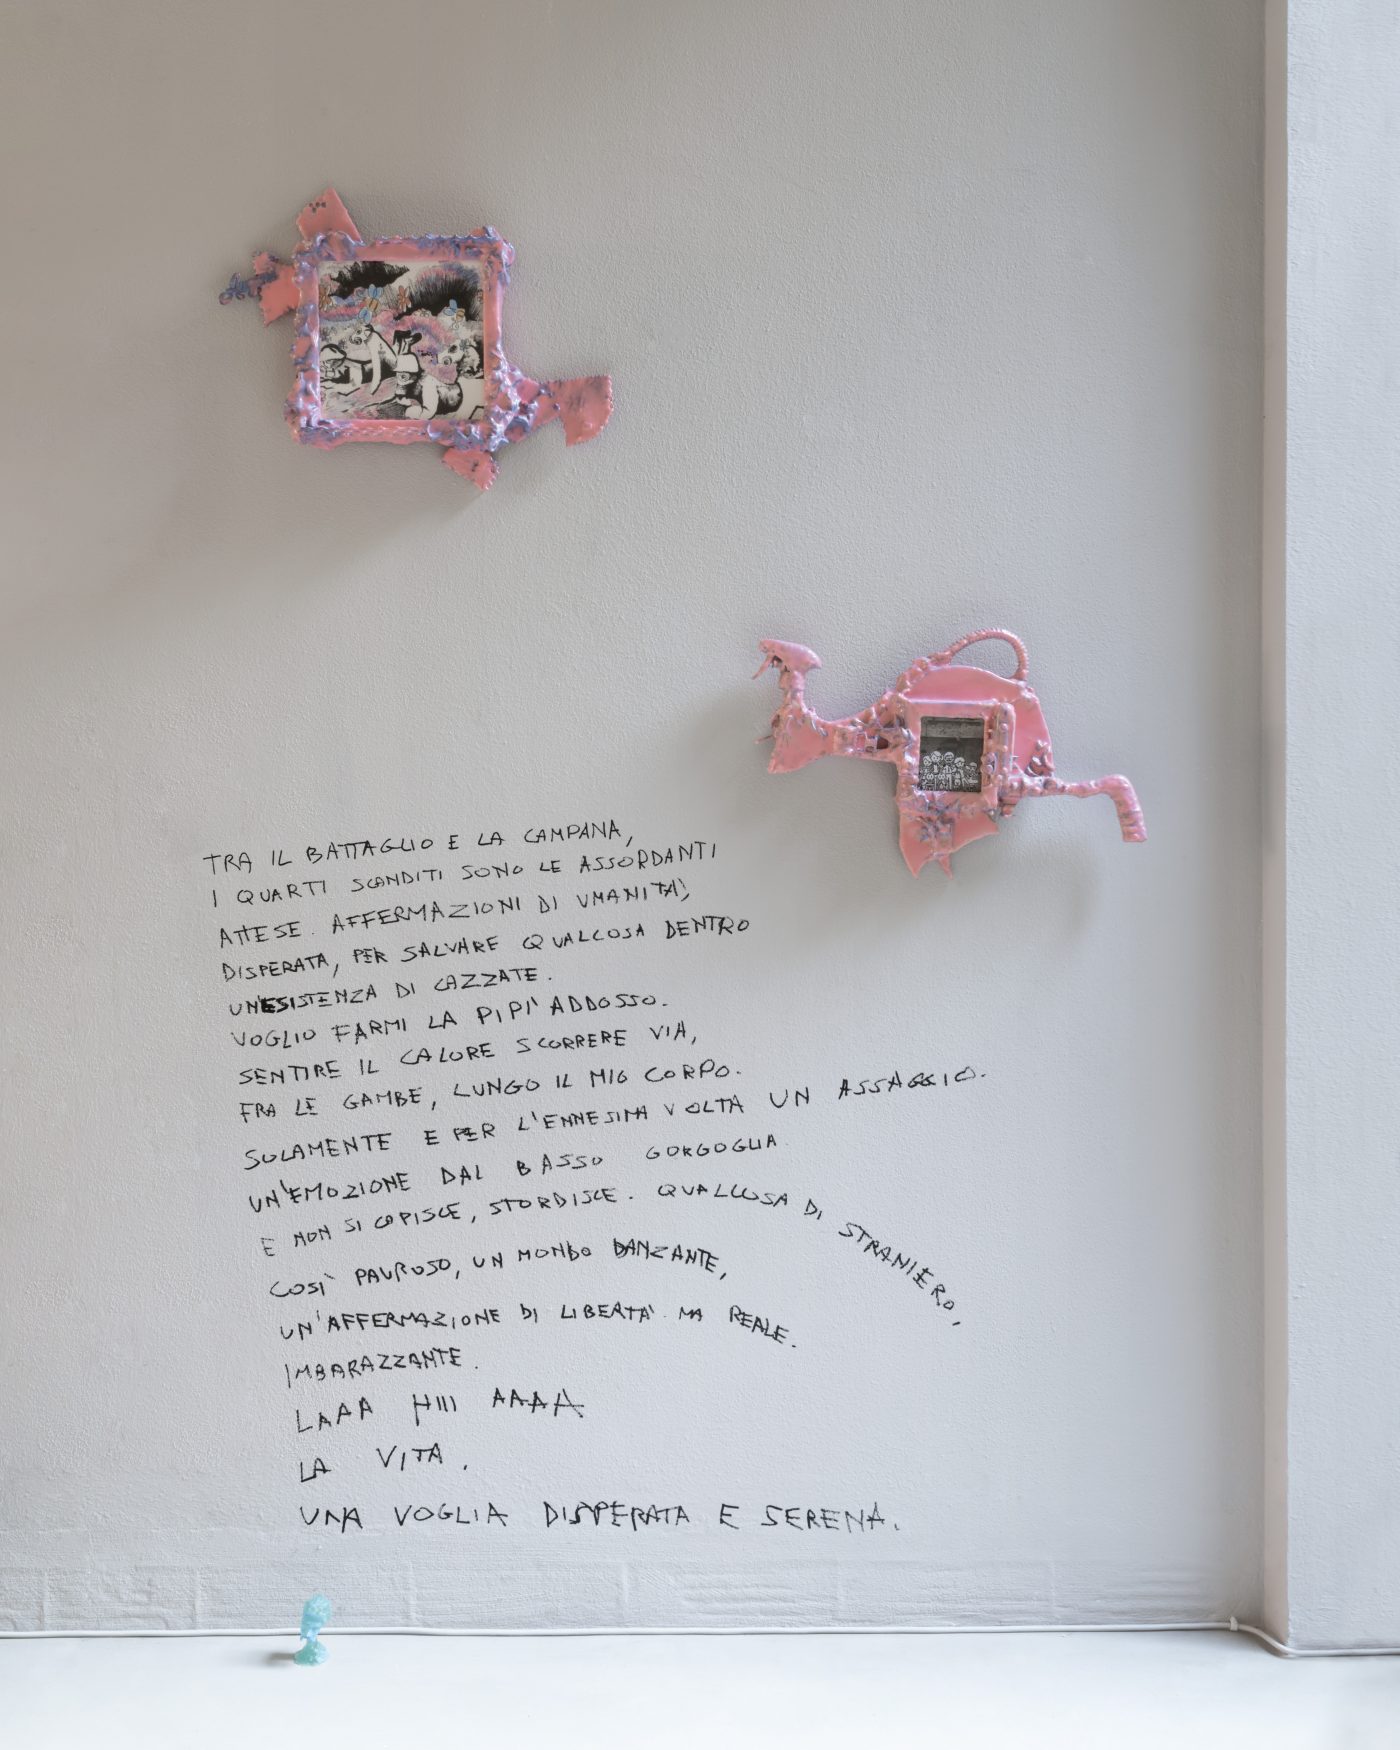 TRA IL BATTAGLIO E LA CAMPANA,
I QUARTI SCANDITI SONO LE ASSORDANTI
ATTESE. AFFERMAZIONI DI UMANITÀ,
DISPERATA, PER SALVARE QUALCOSA DENTRO
UN'ESISTENZA DI CAZZATE.
VOGLIO FARMI LA PIPI' ADDOSSO.
SENTIRE IL CALORE SCORRERE VIA,
FRA LE GAMBE, LUNGO IL MIO CORPO.
SOLAMENTE E PER L'ENNESIMA VOLTA UN ASSAGGIO.
UN'EMOZIONE DAL BASSO GORGOGLIA
E NON SI CAPISCE, STORDISCE. QUALCOSA DI STRANIERO,
COSÌ PAUROSO, UN MONDO DANZANTE,
UN'AFFERMAZIONE DI LIBERTA' MA REALE.
IMBARAZZANTE.
LAAA HIII AAAA
LA VITA.
UNA VOGLIA DISPERATA E SERENA.